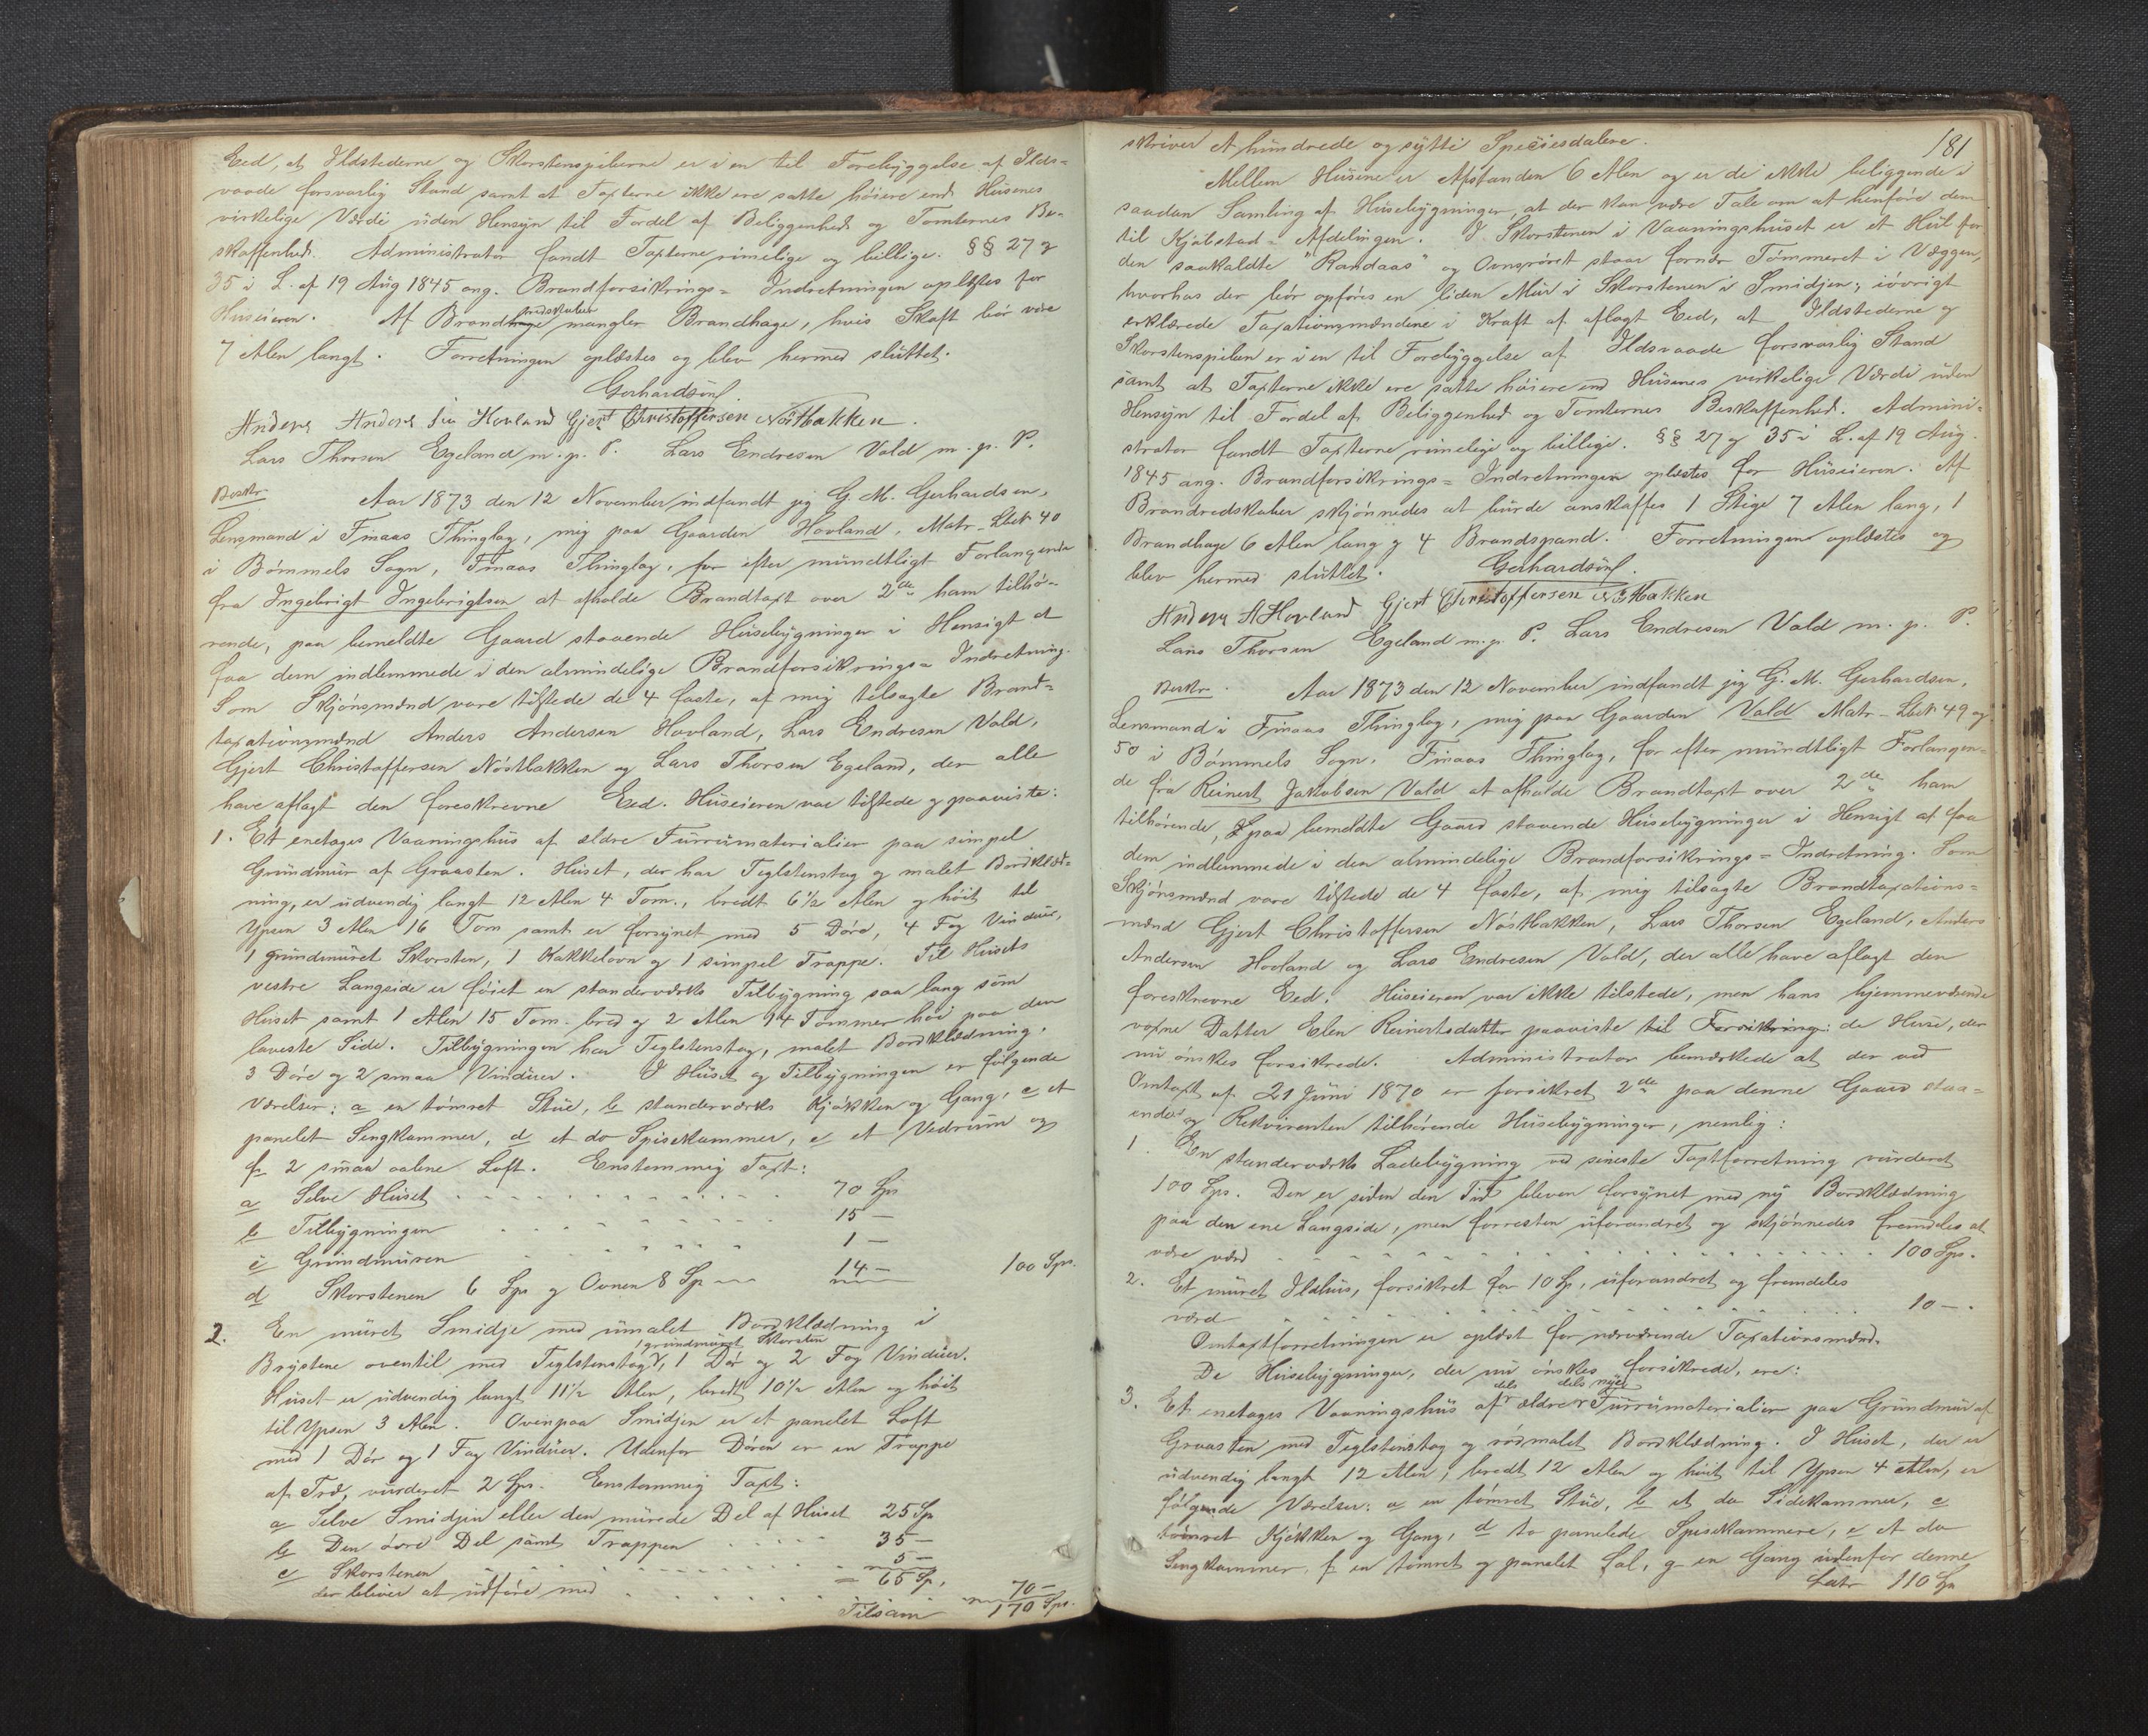 Eed, at Ildstederne og Skorstenspiberne er i en til Forebyggelse af Ilds-
vaade forsvarlig Stand samt at Taxterne ikke ere satte høiere end Husenes
virkelige Værdi uden Hensyn til Fordel af Beliggenhed og Tomternes Be-
skaffenhed. Administrator fandt Taxterne rimelige og billige. §§ 27 og
35 i L. af 19 Aug 1845 ang. Brandforsikrings- Indretningen oplæstes for
Huseieren. Af Brandhage redskaber mangler Brandhage, hvis Skaft bør være
7 Alen langt. Forretningen oplæstes og blev hermed sluttet.
Gerhardsen.
Anders Anders Hovland Gjert Christoffersen Nøstbakken.
Lars Thorsen Egeland m. p. P. Lars Endresen Vold m. p. P.
Beskr. Aar 1873 den 12 November indfandt jeg G. M. Gerhardsen,
Lensmand i Finaas Thinglag, mig paa Gaarden Hovland, Matr-Lbn 40
i Bømmels Sogn, Finaas Thinglag, for efter mundtligt Forlangende
fra Ingebrigt Ingebrigtsen at afholde Brandtaxt over 2de ham tilhø-
rende, paa bemeldte Gaard staaende Husebygninger i Hensigt at
faa dem indlemmede i den almindelige Brandforsikrings- Indretning.
Som Skjønsmænd vare tilstede de 4 faste, af mig tilsagte Brand-
taxationsmænd Anders Andersen Hovland, Lars Endresen Vold,
Gjert Christoffersen Nøstbakken og Lars Thorsen Egeland, der alle
have aflagt den foreskrevne Eed. Huseieren var tilstede og paaviste:
1. Et enetages Vaaningshus af ældre Furrumaterialier paa simpel
Grundmur af Graasten. Huset, der har Teglstenstag og malet Bordklæd-
ning, er udvendig langt 12 Alen 4 Tom., bredt 6 1/2 Alen og høit til
Ypsen 3 Alen 16 Tom samt er forsynet med 5 Døre, 4 Fag Vinduer,
1 grundmuret Skorsten, 1 Kakkelovn og 1 simpel Trappe. Til Husets
vestre Langside er føiet en standerværks Tilbygning saa lang som
Huset samt 1 Alen 15 Tom. bred og 2 Alen 14 Tommer høi paa den
laveste Side. Tilbygningen har Teglstenstag, malet Bordklædning,
3 Døre og 2 smaa Vinduer. I Huset og Tilbygningen er følgende
Værelser: a en tømret Stue, b standerværks Kjøkken og Gang, c et
panelet Sengkammer, d et do Spisekammer, e et Vedrum og
f 2 smaa aabne Loft. Enstemmig Taxt:
a Selve Huset 70 Spd
b Tilbygningen 15 —
c Grundmuren 1 —
d Skorstenen 6 Spd og Ovnen 8 Sp 14 — 100 Spd.
2. En muret Smidje med umalet Bordklædning i
Brystene oventil med Teglstenstag, 1 grundmuret Skorsten, 1 Dør og 2 Fag Vinduer.
Huset er udvendig langt 11 1/2 Alen, bredt 10 1/2 Alen og høit
til Ypsen 3 Alen. Ovenpaa Smidjen er et panelet Loft
med 1 Dør og 1 Fag Vinduer. Udenfor Døren er en Trappe
af Træ, vurderet 2 Spd. Enstemmig Taxt:
a Selve Smidjen eller den murede Del af Huset 25 Sp
b Den øvre Del samt Trappen 35 —
c Skorstenen 5 —
der bliver at udføre med = 65 Sp. 70 —
Tilsam 170 Spd.
181
skriver Et hundrede og sytti Speciesdalere.
Mellem Husene er Afstanden 6 Alen og er de ikke beliggende i
saadan Samling af Husebygninger, at der kan være Tale om at henføre dem
til Kjøbstad-Afdelingen. I Skorstenen i Vaaningshuset er et Hul for
den saakaldte "Randaas" og Ovnsrøret staar for nær Tømmeret i Væggen,
hvorhos der bør opføres en liden Mur i Skorstenen i Smidjen; iøvrigt
erklærede Taxationsmændene i Kraft af aflagt Eed, at Ildstederne og
Skorstenspiben er i en til Forebyggelse af Ildsvaade forsvarlig Stand
samt at Taxterne ikke ere satte høiere end Husenes virkelige Værdi uden
Hensyn til Fordel af Beliggenhed og Tomternes Beskaffenhed. Admini-
strator fandt Taxterne rimelige og billige. §§ 27 og 35 i L. af 19 Aug.
1845 ang. Brandforsikrings- Indretningen oplæstes for Huseieren. Af
Brandredskaber skjønnedes at burde anskaffes 1 Stige 7 Alen lang, 1
Brandhage 6 Alen lang og 4 Brandspand. Forretningen oplæstes og
blev hermed sluttet. Gerhardsen.
Anders A Hovland Gjert Christoffersen Nøstbakken
Lars Thorsen Egeland m. p. P. Lars Endresen Vold m. p. P.
Beskr. Aar 1873 den 12 November indfandt jeg G. M. Gerhardsen,
Lensmand i Finaas Thinglag, mig paa Gaarden Vold Matr-Lbn 49 og
50 i Bømmels Sogn, Finaas Thinglag, for efter mundtligt Forlangen-
de fra Reinert Jakobsen Vold at afholde Brandtaxt over 2de ham
tilhørende, paa bemeldte Gaard staaende Husebygninger i Hensigt at faa
dem indlemmede i den almindelige Brandforsikrings- Indretning. Som
Skjønsmænd vare tilstede de 4 faste, af mig tilsagte Brandtaxations-
mænd Gjert Christoffersen Nøstbakken, Lars Thorsen Egeland, Anders
Andersen Hovland og Lars Endresen Vold, der alle have aflagt den
foreskrevne Eed. Huseieren var ikke tilstede, men hans hjemmeværende
voxne Datter Elen Reinertsdatter paaviste til Forsikring: de Huse, der
nu ønskes forsikrede. Administrator bemærkede at der ved
Omtaxt af 21 Juni 1870 er forsikret 2de paa denne Gaard staa-
ende og Rekvirenten tilhørende Husebygninger, nemlig:
1. En standerværks Ladebygning ved seneste Taxtforretning vurderet
100 Spd. Den er siden den Tid bleven forsynet med ny Bordklædning
paa den ene Langside, men forresten uforandret og skjønnedes fremdeles at
være værd 100 Spd.
2. Et muret Ildhus, forsikret for 10 Sp, uforandret og fremdeles
værd 10 —.
Omtaxtforretningen er oplæst for nærværende Taxationsmænd.
De Husebygninger, der nu ønskes forsikrede, ere:
3. Et enetages Vaaningshus af dels ældre dels nyere Furrumaterialier paa Grundmur af
Graasten med Teglstenstag og rødmalet Bordklædning. I Huset, der er
udvendig langt 12 Alen, bredt 12 Alen og høit til Ypsen 4 Alen, er
følgende Værelser: a en tømret Stue, b et do Sidekammer, c
tømret Kjøkken og Gang, d to panelede Spisekammere, e et do
Sengkammer, f en tømret og panelet Sal, g en Gang udenfor denne
Latr 110 Sp